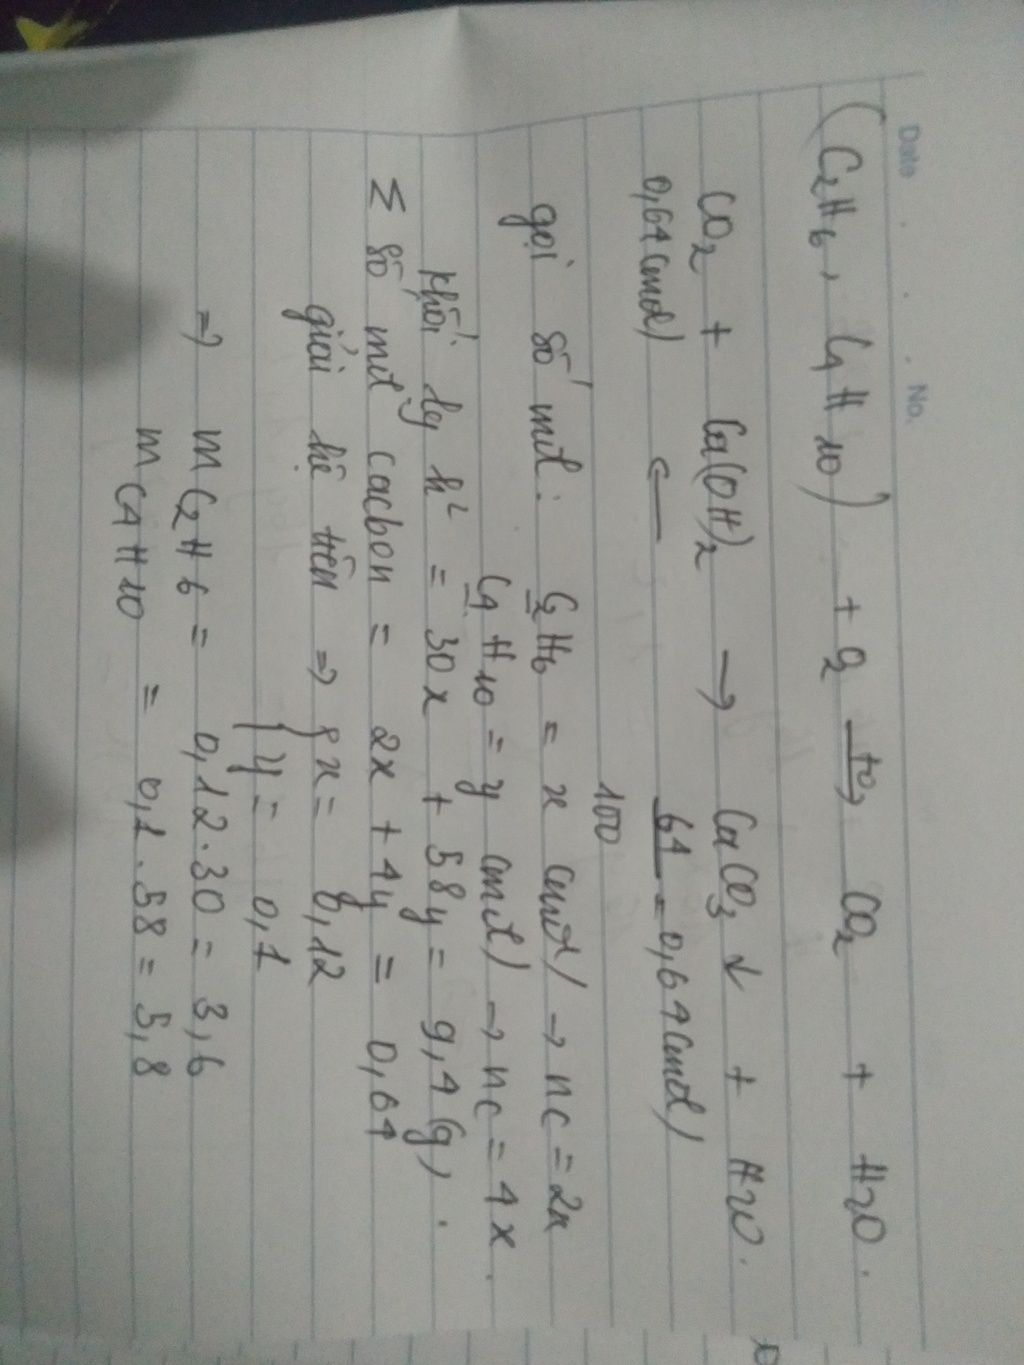 Date No.
(C2H6, C4H10) + O2 t°→ CO2 + H2O.
CO2 + Ca(OH)2 → CaCO3 ↓ + H2O.
0,64 (mol) ← 64/100 = 0,64 (mol)
gọi số mol: C2H6 = x (mol) → nC = 2x
C4H10 = y (mol) → nC = 4x.
khối lg h² = 30x + 58y = 9,4 (g).
Σ số mol cacbon = 2x + 4y = 0,64
giải hệ trên ⇒ { x = 0,12
y = 0,1
⇒ m C2H6 = 0,12.30 = 3,6
m C4H10 = 0,1.58 = 5,8